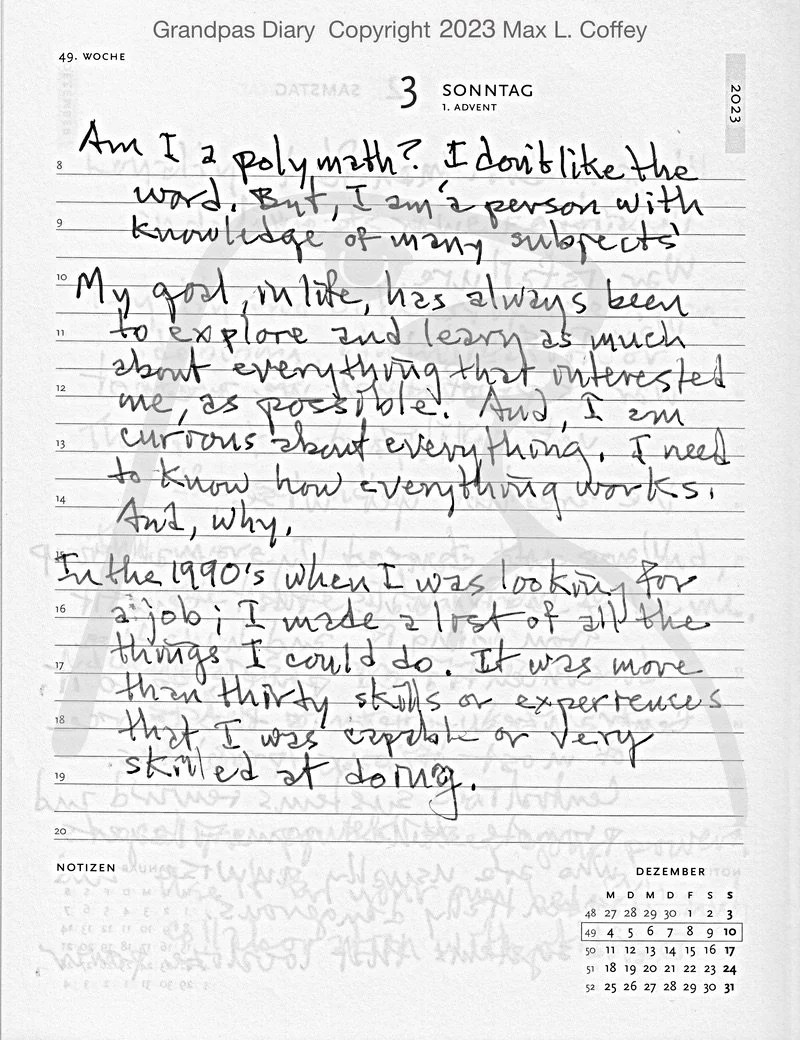 Grandpas Diary Copyright 2023 Max L. Coffey
49. WOCHE
3 SONNTAG
1. ADVENT
2023
Am I a polymath? I don't like the
8
word. But, I am a person with
9
knowledge of many subjects
10
My goal, in life, has always been
11
to explore and learn as much
about everything that interested
12
me, as possible. And, I am
13
curious about everything. I need
to know how everything works.
14
And, why.
15
In the 1990's when I was looking for
16
a job; I made a list of all the
things I could do. It was more
17
than thirty skills or experiences
18
that I was capable or very
19
skilled at doing.
20
NOTIZEN
DEZEMBER
M D M D F S S
48 27 28 29 30 1 2 3
49 4 5 6 7 8 9 10
50 11 12 13 14 15 16 17
51 18 19 20 21 22 23 24
52 25 26 27 28 29 30 31